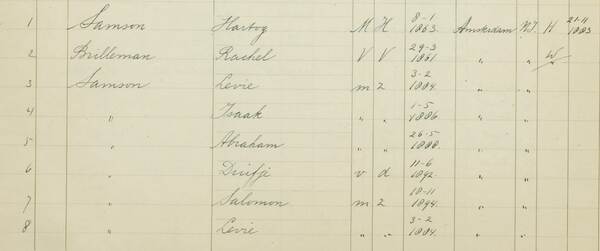 1 Samson Hartog M H 8-1 1863. Amsterdam N.I. H 21-11 1883
2 Brilleman Rachel V V 29-3 1861 " " W
3 Samson Levie m z 3-2 1884. " "
4 " Isaak " " 1-5 1886 " "
5 " Abraham " " 26-5 1888. " "
6 " Duifje v d 11-6 1892. " "
7 " Salomon m z 10-11 1894. " "
8 " Levie " " 3-2 1884. " "